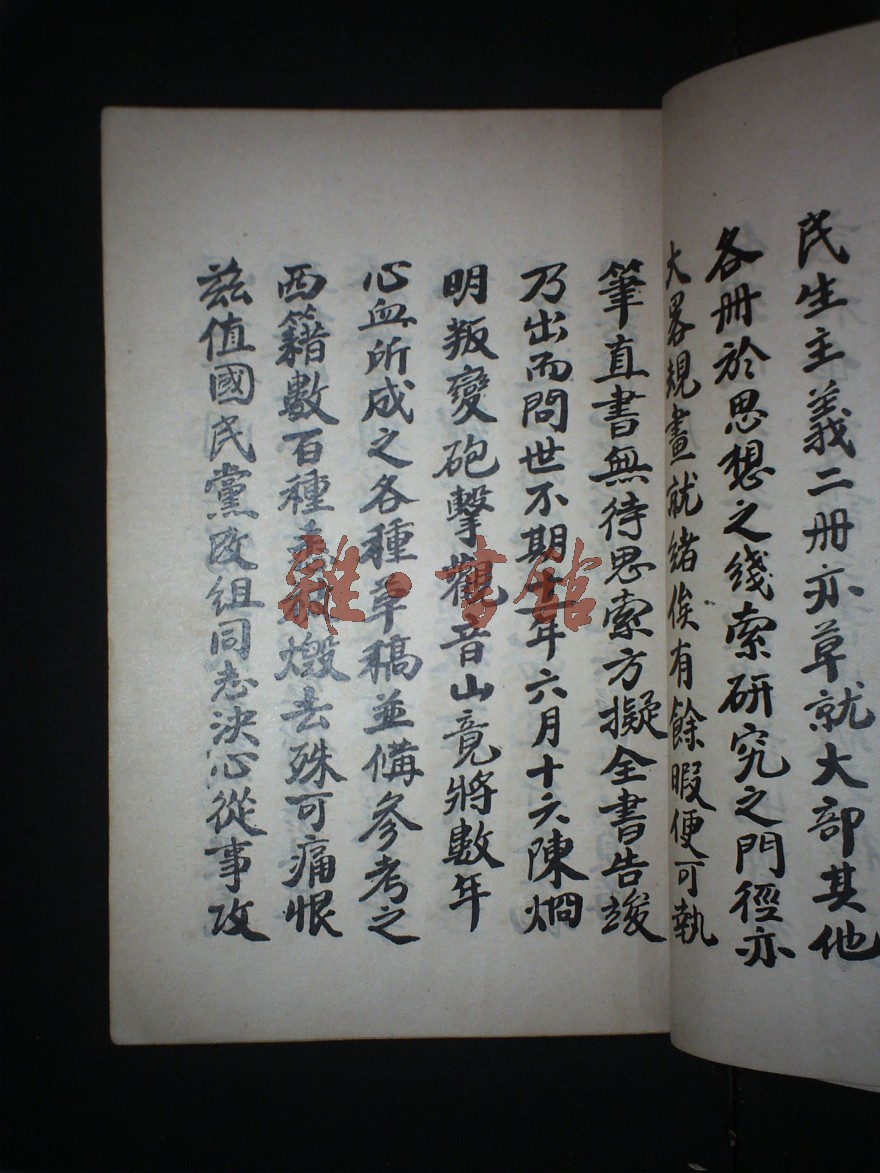 民生主義二冊亦草就大部其他
各冊於思想之綫索研究之門徑亦
大畧規畫就緒俟有餘暇便可執
筆直書無待思索方擬全書告竣
乃出而問世不期十一年六月十六陳炯
明叛變砲擊觀音山竟將數年
心血所成之各種草稿並備參考之
西籍數百種悉被燬去殊可痛恨
茲值國民黨改組同志決心從事攻
雜·書館